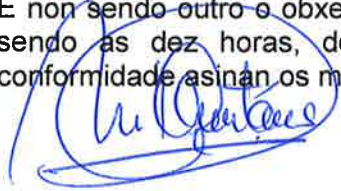 E non sendo outro o obxe
sendo ás dez horas, de
conformidade asinan os m